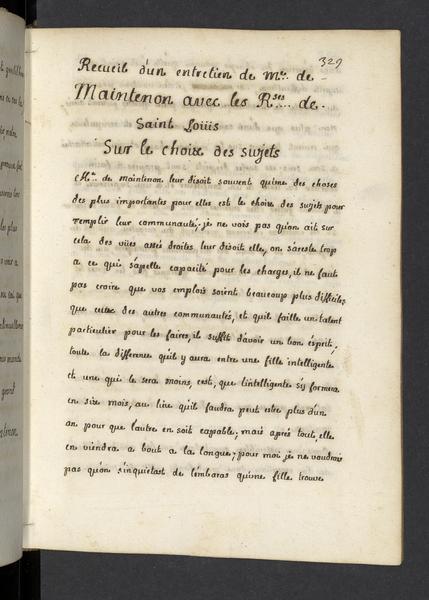 329
Recueil d'un entretien de Mde. de
Maintenon avec les Rses.... de.
Saint Loüis
Sur le choix des sujets
Mde. de maintenon leur disoit souvent qu'une des choses
des plus importantes pour elles est le choix des sujets pour
remplir leur communauté; je ne vois pas qu'on ait sur
cela des vües assés droites leur disoit elle, on s'areste trop
a ce qui s'apelle capacité pour les charges, il ne faut
pas croire que vos emplois soient beaucoup plus difficiles
que ceux des autres communautés, et qu'il faille un talent
particulier pour les faires, il suffit d'avoir un bon ésprit,
toute la difference qu'il y aura entre une fille intelligente
et une qui le sera moins, c'est, que l'intelligente s'y formera
en six mois, au lieu qu'il faudra peut estre plus d'un
an pour que l'autre en soit capable; mais aprés tout, elle
en viendra a bout a la longue; pour moi je ne voudrois
pas qu'on s'inquietast de l'embaras qu'une fille trouve